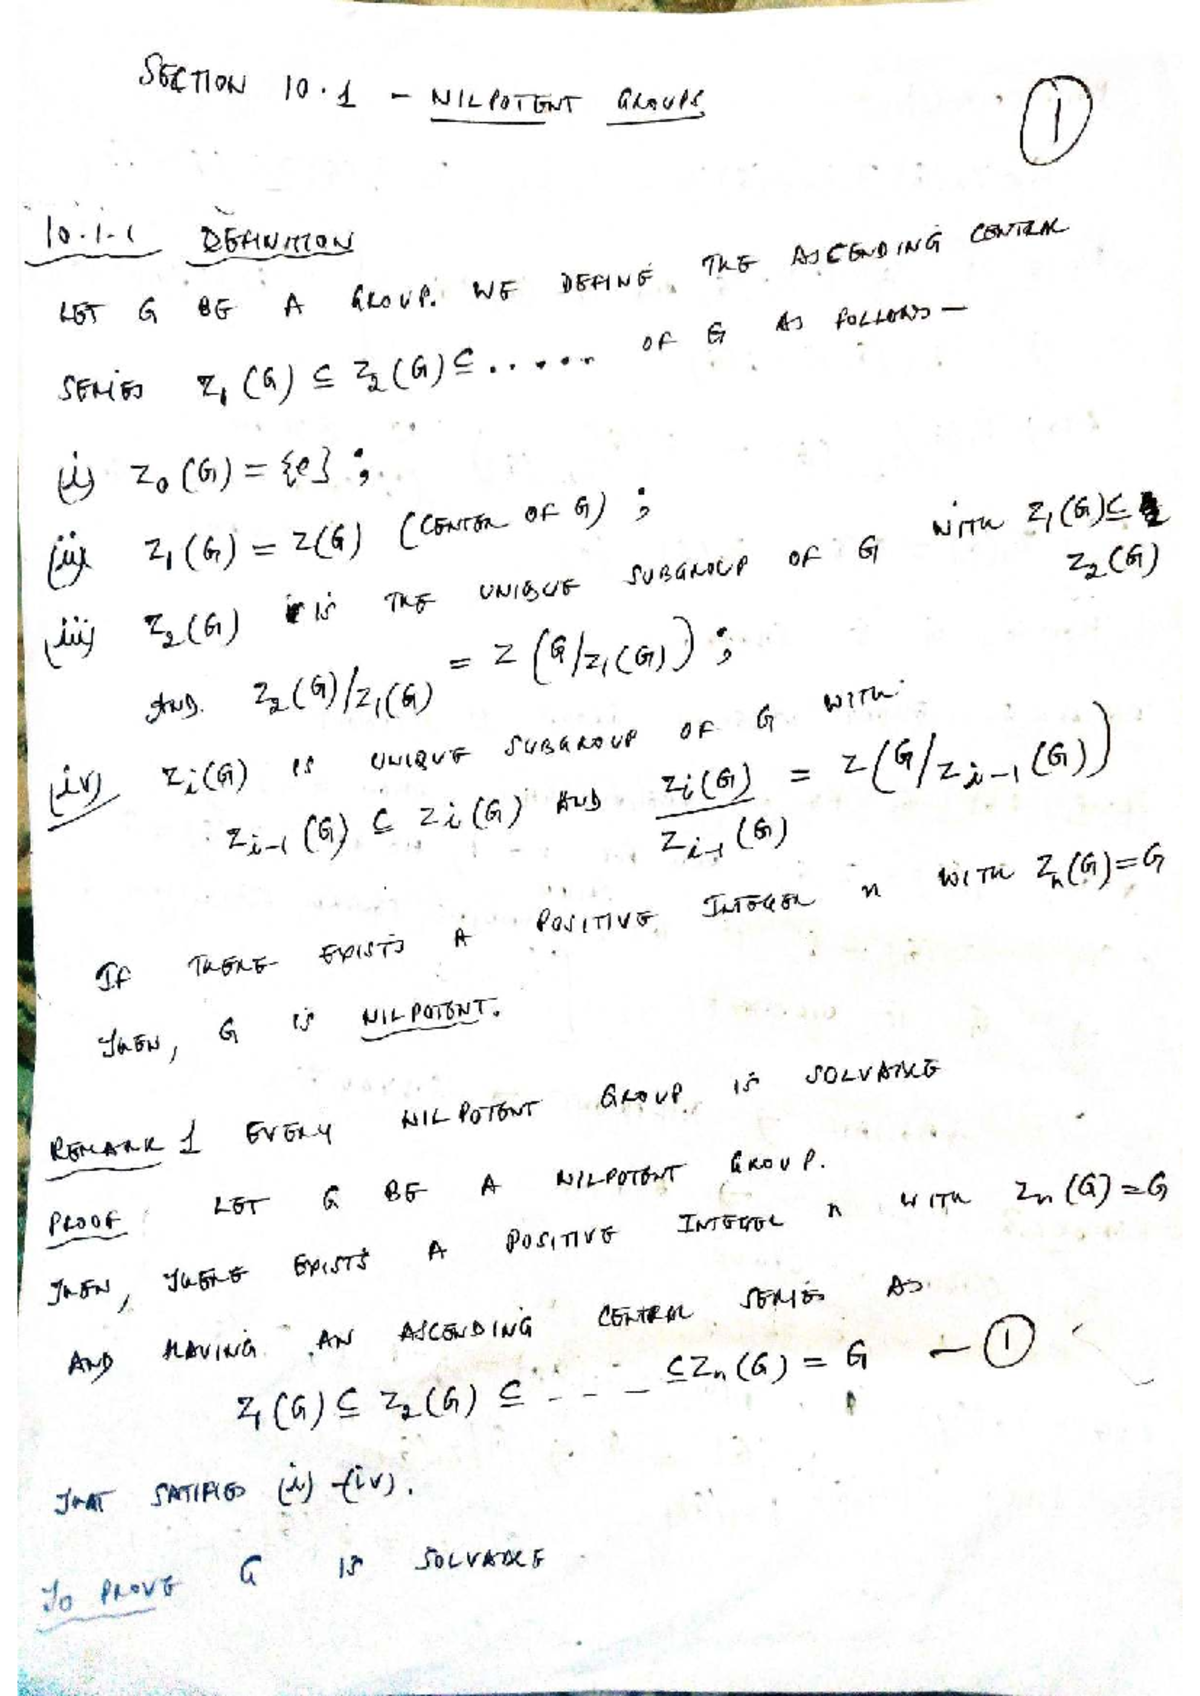 SECTION 10.1 - NILPOTENT GROUPS
1
10.1.1 DEFINITION
LET G BE A GROUP. WE DEFINE THE ASCENDING CENTRAL
SERIES Z₁(G) ⊆ Z₂(G) ⊆ ...... OF G AS FOLLOWS —
(i) Z₀(G) = {e} ;
(ii) Z₁(G) = Z(G) (CENTER OF G) ;
(iii) Z₂(G) IS THE UNIQUE SUBGROUP OF G WITH Z₁(G) ⊆
Z₂(G)
AND Z₂(G)/Z₁(G) = Z(G/Z₁(G)) ;
(iv) Zᵢ(G) IS UNIQUE SUBGROUP OF G WITH
Zᵢ₋₁(G) ⊆ Zᵢ(G) AND Zᵢ(G)/Zᵢ₋₁(G) = Z(G/Zᵢ₋₁(G))
IF THERE EXISTS A POSITIVE INTEGER n WITH Zₙ(G)=G
THEN, G IS NILPOTENT.
REMARK 1 EVERY NILPOTENT GROUP IS SOLVABLE
PROOF LET G BE A NILPOTENT GROUP.
THEN, THERE EXISTS A POSITIVE INTEGER n WITH Zₙ(G)=G
AND HAVING AN ASCENDING CENTRAL SERIES AS
Z₁(G) ⊆ Z₂(G) ⊆ - - - ⊆ Zₙ(G) = G — 1
THAT SATIFIED (i) - (iv).
TO PROVE G IS SOLVABLE